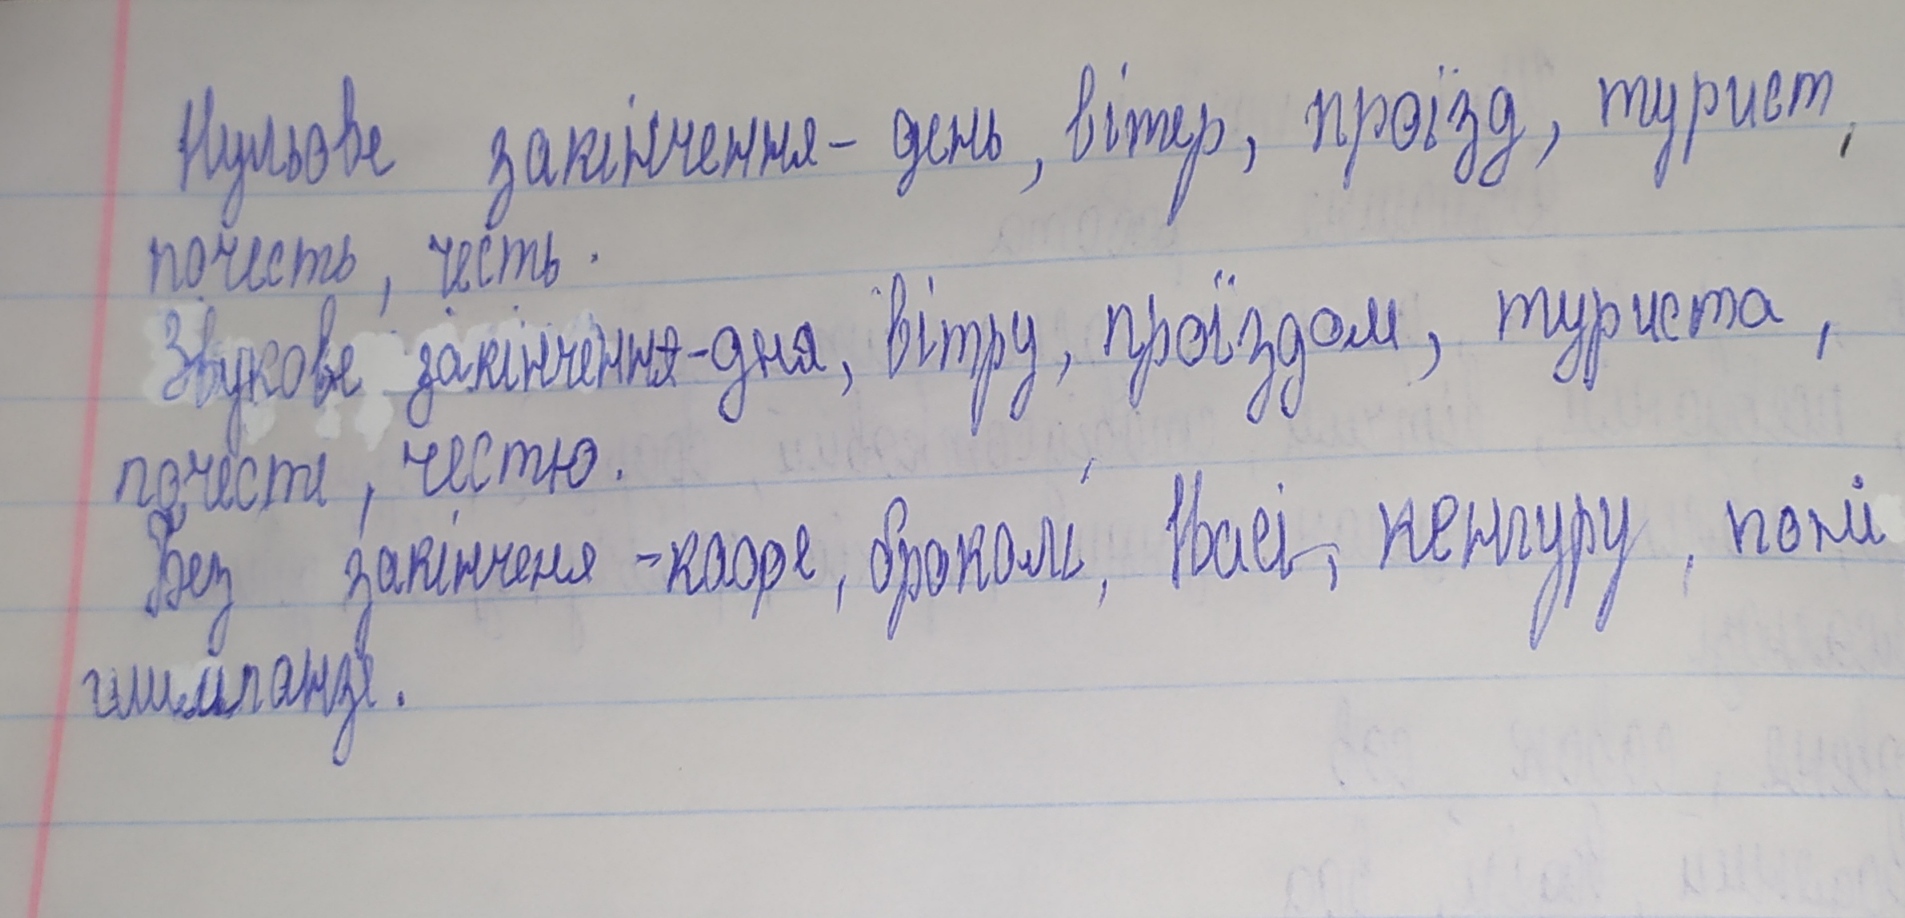 Нульове закінчення - день, вітер, проїзд, турист,
почесть, честь.
Звукове закінчення - дня, вітру, проїздом, туриста,
почесті, честю.
Без закінченя - кафе, броколі, Івасі, кенгуру, поні
шимпанзе.